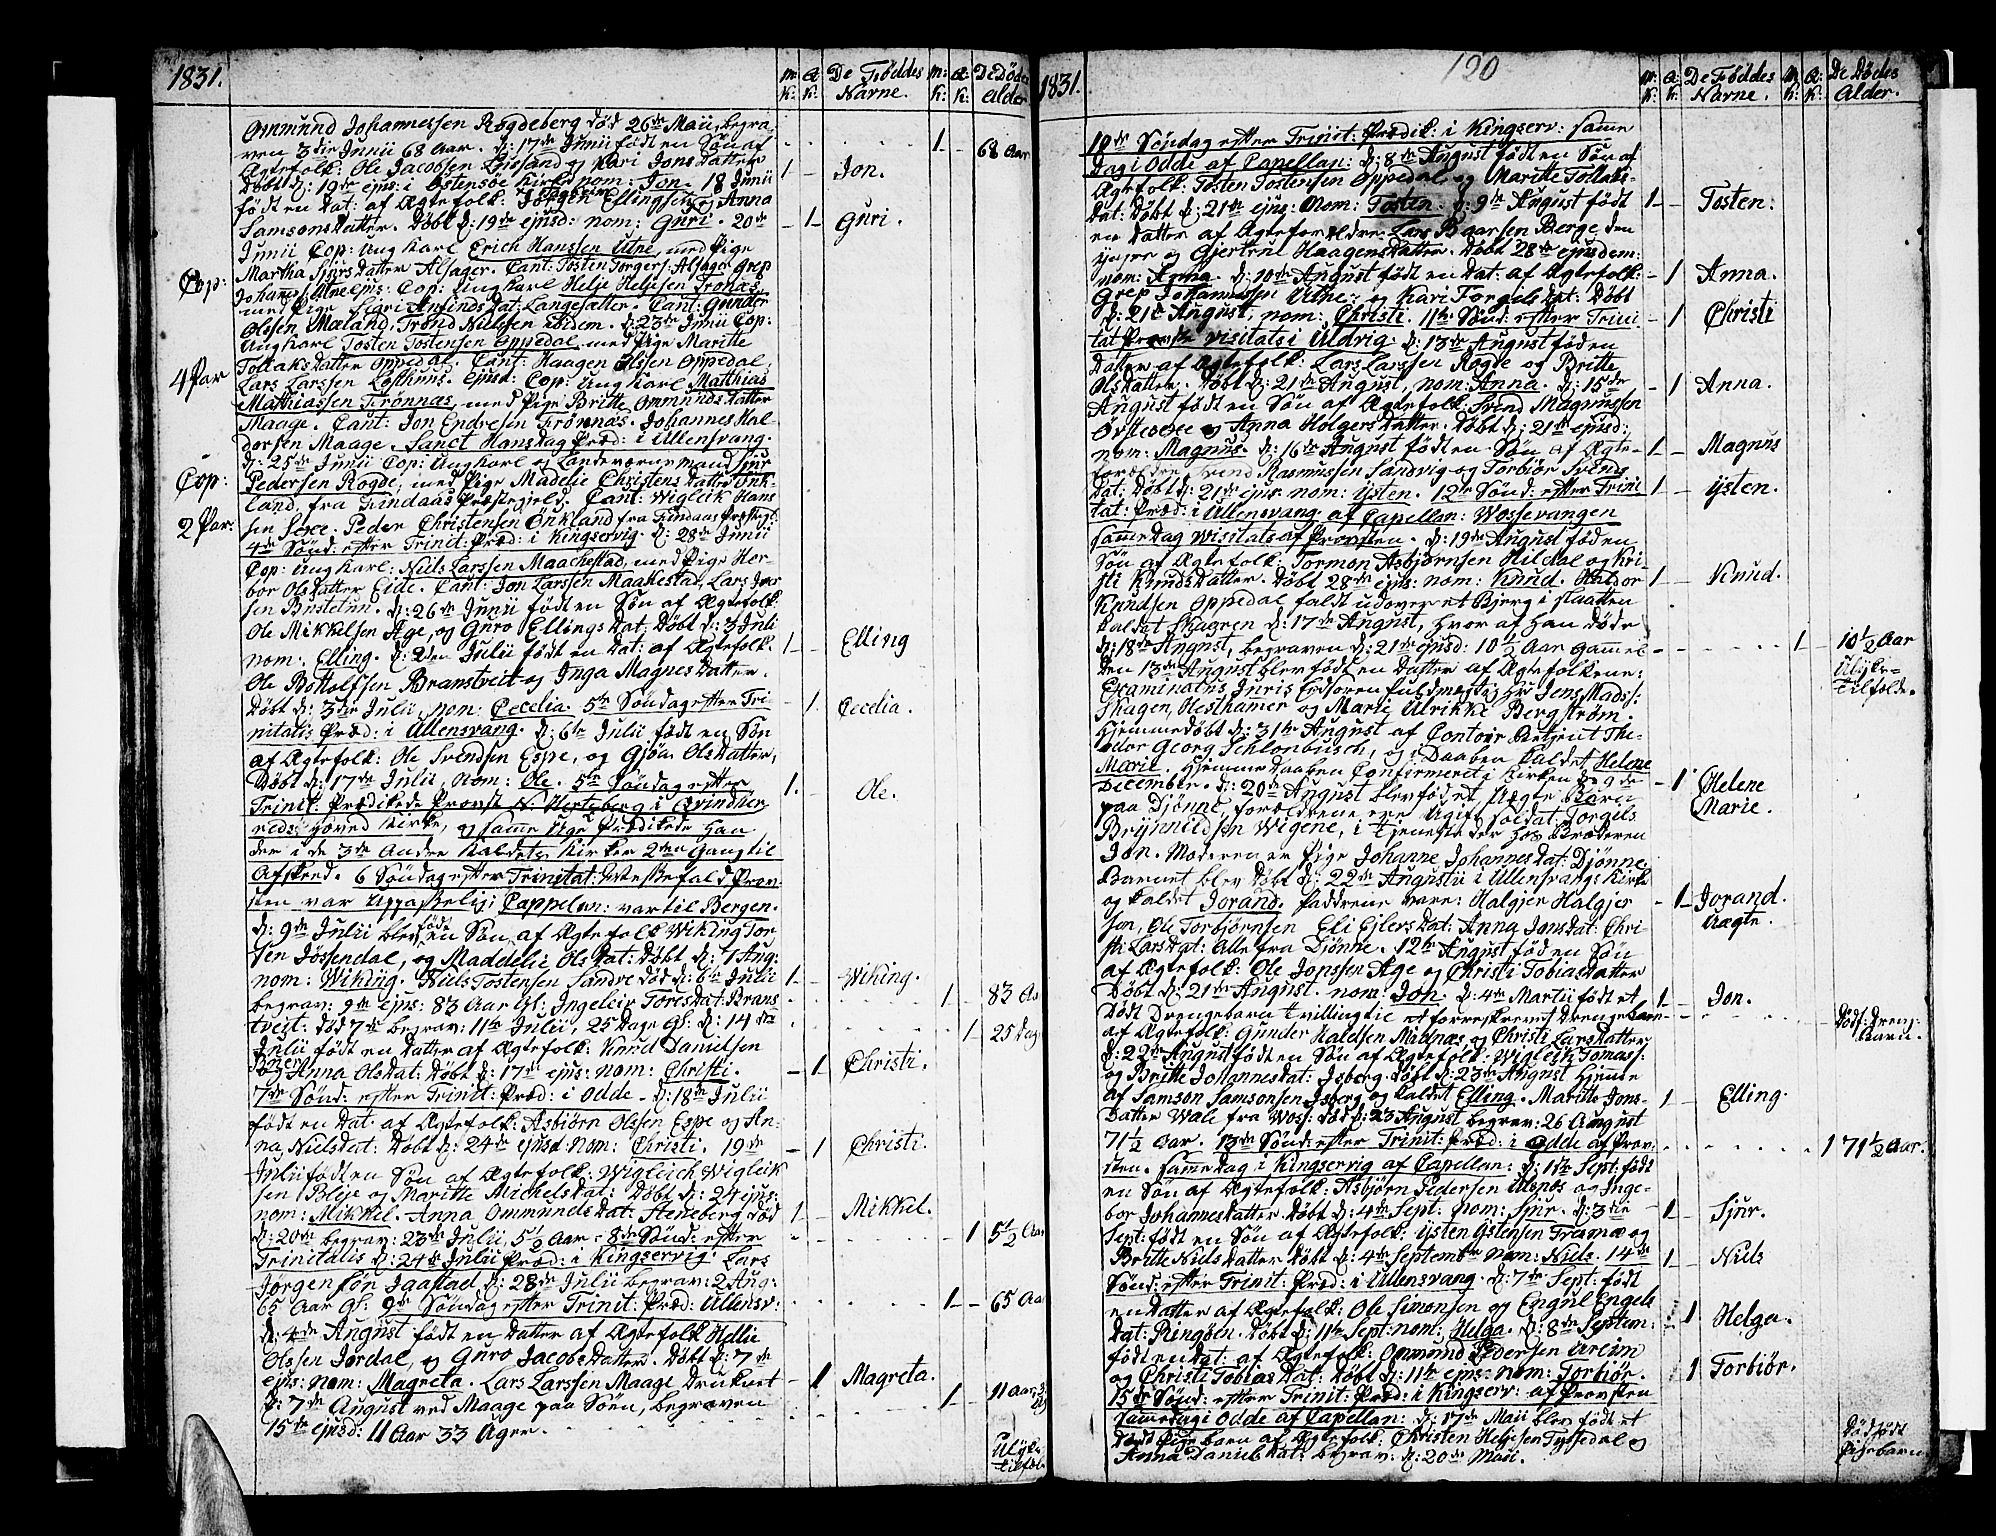 1831.
m: K:
Q: K:
DeFøddes Navne.
m: K:
Q: K:
De Dødes Alder
Ommund Johannessen Rogdeberg død 26de Maii, begra-
ven 3die Junii 68 Aar. d: 17de Junii født en Søn af
Ægtefolk: Ole Jacobsen og Kari Jons Datter
Døbt d: 19de ejus: i Ostensøe Kirke nom: Jon. 18 Junii
født en Dat: af Ægtefolk: Ellingsen og Anna
Samsons Datter. Døbt d: 19de ejusd: nom: Guri. 20de
Junii Cop: Ung Karl Erich Hanssen Utne, med Pige
Martha Sjurs Datter Alsager. Cant: Tosten Torgers: Alsager Grep
Johannes: Utne ejus: Cop: Ung Karl Helje Heljesen Tronæs,
med Pige Kari Amunds Dat: Langesæter. Cant: Gunder
Olssen Mæland, Trond Nielssen Eidem. d: 23de Junii Cop:
Ung Karl Tosten Tostensen Oppedal med Pige Maritte
Tollaks Datter Oppedal. Cant: Haagen Olssen Oppedal,
Lars Larssen Lofthuus. ejusd: Cop: Ung Karl Matthias
Matthiassen Frønnæs, med Pige Britte Ommunds Datter
Maage. Cant: Jon Endresen Frønnæs. Johannes Hal-
dorsen Maage. Sanct Hans Dag Præd: i Ullensvang.
d: 25de Junii Cop: Ung Karl og Landeværns mand Sjur
Pedersen Rogde, med Pige Madelie Christens Datter Onk-
land, fra Findaas Præstegjeld. Cant: Wigleik Hans
sen Sexe. Peder Christensen Onkland fra Findaas Præstegj:
4de Sønd: efter Trinit: Præd: i Kingservig. d: 28de Junii
Cop: Ung Karl: Niels Larssen Maachestad, med Pige Her-
bor Ols Datter Eide. Cant: Jon Larssen Maakestad, Lars Iver
sen Bustetun. d: 26de Junii født en Søn af Ægtefolk:
Ole Mikkelsen Age, og Guro Ellings Dat: Døbt d: 3 Juli
nom: Elling. d: 2den Julii født en Dat: af Ægtefolk:
Ole Bottolfsen Branstveit og Inga Magnes Datter.
Døbt d: 3die Julii, nom: Cecelia. 5te Søndag efter Tri-
nitatis Præd: i Ullensvang. d: 6te Julii født en Søn
af Ægtefolk: Ole Svendsen Espe, og Gjøa Ols Datter,
Døbt d: 17de Julii, nom: Ole. 5te Søndag efter
Trinit: Prædikede Provst N. Hertzberg i Qvindher
reds Hoved Kirke, og samme Uge Prædikede han
der i de 3de Andre Kaldets Kirker 2den Gang til
Afsked. 6 Søndag efter Trinitat: Messefald Prov-
sten var Uppasselig: Cappelan: var til Bergen.
d: 9de Julii blev født en Søn, af Ægtefolk Wiking Tor-
sen Jøssendal, og Maddelie Ols Dat: Døbt d: 7 Aug:
nom: Wiking. Niels Tostensen Sandve død d: 6te Julii
begrav: 9de ejus: 83 Aar Gl: Ingeleiv Tores Dat: Brans
tveit: død 7de begrav: 11te Julii, 25 Dage Gl: d: 14de
Julii født en Datter af Ægtefolk: Knud Danielsen
Berg og Anna Ols Dat: Døbt d: 17de ejus: nom: Christi.
7de Sønd: efter Trinit: Præd: i Odde. d: 18de Julii
født en Dat: af Ægtefolk: Asbiørn Olssen Espe og An-
na Niels Dat: Døbt d: 24de ejusd: nom: Christi. 19de
Julii født en Søn af Ægtefolk: Wigleich Wigleik
sen Bleje og Maritte Michels Dat: Døbt d: 24 ejus:
nom: Mikkel. Anna Ommunds Dat: Steneberg død
d: 20de begrav: 23de Julii, 5 1/2 Aar. 8de Sønd: efter
Trinitatis d: 24de Julii Præd: i Kingservig. Lars
Jørgensøn Jaastad d: 28de Julii begrav: 2 Aug:
65 Aar Gl: 9de Søndag efter Trinit: Præd: Ullensv:
d: 4de August født en Datter af Ægtefolk Helje
Olssen Jordal, og Guro Jacobs Datter. Døbt d: 7de
ejus: nom: Magreta. Lars Larssen Maage druknet
d: 7de August ved Maage paa Søen, begraven
15de ejusd: 11 Aar 33 Uger.
Cop:
4 Par
Cop:
2 Par:
1 Jon.
1 Guri.
1 Elling
1 Cecelia.
1 Ole.
1 Wiking.
1 Christi.
1 Christi.
1 Mikkel.
1 Magreta.
1 68 Aar
1 83 Aa
1 25 Dag
1 5 1/2 Aar
1 65 Aa
1 11 Aar
Ulyks-
tilfæl
1831.
120
m: K:
Q: K:
De Føddes Navne.
M: K:
Q: K:
De Dødes Alder.
10de Søndag efter Trinit: Prædik: i Kingserv: samme
Dag i Odde af Capellan: d: 8de August født en Søn af
Ægtefolk: Tosten Tostensen Oppedal, og Maritte Tollaks-
Dat: Døbt d: 21de ejus: nom: Tosten. d: 9de August født
en Datter af Ægteforældre Lars Baarsen Berge den
yngre og Gjertrue Haagens Datter. Døbt 28de ejusdem:
nom: Anna. d: 10de August født en Dat: af Ægtefolk:
Grep Johannessen Uthe, og Kari Torgils Dat: Døbt
d: 21de August, nom: Christi. 11te Sønd: efter Trini
tat: Provste Visitats i Uldvig: d: 13de August føden
Datter af Ægtefolk: Lars Larssen Rogde og Britte
Ols Datter. Døbt d: 21de August, nom: Anna. d: 15de
August født en Søn af Ægtefolk: Svend Magnussen
Øvstevere og Anna Holgers Datter. Døbt d: 21de ejusd:
nom: Magnus. d: 16de August født en Søn af Ægte-
forældre Svend Rasmussen Sandvig og Torbiør Svend
Dat: Døbt d: 21de ejus: nom: ysten. 12te Sønd: efter Trini
tat: Præd: i Ullensvang af Capellan: Wossevangen
samme Dag Visitats af Provsten. d: 19de August føden
Søn af Ægtefolk: Tormon Asbjørnsen Hildal og Kri
sti Knuds Datter. Døbt 28de ejus: nom: Knud. Haldor
Knudsen Oppedal faldt udover et Bjerg i slaatten
kaldet Skagren d: 17de August, hvor af han døde
d: 18de August, begraven d: 21de ejusd: 10 1/2 Aar gammel
Den 13de August blev født en Datter af Ægtefolkene:
Examinatus Juris Fuldmægtig Hr Jens Madss:
Skagen, Hesthamer og Marie Ulrikke Bergstrøm.
Hjemmedøbt d: 31te August af Contoir Betjent The-
odor Georg Schlonbusch, og i Daaben kaldet Helene
Marie. Hjemme Daaben Confirmerit i Kirken d: 9de
December. d: 20de August blev føed et Uægte Barn
paa Djønne, forældrene ere Ugift soldat Torgels
Brynnildsen Wigene, i tjeneste der hos Broderen
Jon. Moderen er Pige Johanne Johannes Dat: Djønne.
Barnet blev Døbt d: 22de Augustii i Ullensvangs Kirke
og kaldet Jorand. Faddrene vare: Halgjer Halgjer
sen, Ole Torbjørnsen Eli Ejlers Dat: Anna Jons Dat: Chri-
sti Lars Dat: Alle fra Djønne. 12te August føden Søn
af Ægtefolk: Ole Jonssen Age og Christi Tobias Datter
Døbt d: 21de August. nom: Jon. d: 4de Martii født et
Dødt Drengebarn tvillingtil et forreskrevet Drengebarn
af Ægtefolk: Gunder Haldsen Madnæs og Christi Lars Datter
d: 22de August født en Søn af Ægtefolk: Wigleik Tomass:
og Britte Johannes Dat: Isberg. Døbt d: 23de August Hjemme
af Samson Samsonsen Isberg og kaldet Elling. Maritte Jons-
Datter Wale fra Woss: død d: 23 August begrav: 26 August
71 1/2 Aar. 13de Sønd: efter Trinit: Præd: i Odde af Prov-
sten. samme dag i Kingservig af Capellan: d: 1ste Sept: født
en Søn af Ægtefolk: Asbjørn Pedersen Ulsnæs og Inge-
bor Johannes Datter. Døbt d: 4de Sept: nom: Sjur. d: 3die
Sept: født en Søn af Ægtefolk: ysten Ostensen Træmæ og
Britte Niels Datter Døbt d: 4de Septembr nom: Niels. 14de
Sønd: efter Trinit: Præd: i Ullensvang. d: 7de Sept: født
en Datter af Ægtefolk: Ole Simonsen og Engul Engels
Dat: Ringøen. Døbt d: 11te Sept: nom: Helga. d: 8de Septem:
født en Dat: af Ægtefolk: Ommund Pedersen
og Christi Tobias Dat: Døbt d: 11te ejus: nom: Torbiør.
15de Sønd: efter Trinit: Præd: i Kingserv: af Provsten
samme dag i Odde af Capellan: d: 17de Maii blev født et
dødt Pigebarn af Ægtefolk: Christen Heljesen Tyssedal og
Anna Daniels Dat: begrav: d: 20de Maii.
1 Tosten.
1 Anna.
1 Christi
1 Anna.
1 Magnus
1 ysten.
1 Knud.
1 Helene
Marie.
1 Jorand.
Uægte.
1 Jon.
1 Elling.
1 Sjur.
1 Niels
1 Helga.
1 Torbiør.
1 10 1/2 Aar
Ulyks-
tilfælde.
Dødf: Dreng
Barn.
1 71 1/2 Aar.
Dødfødt
Pigebarn